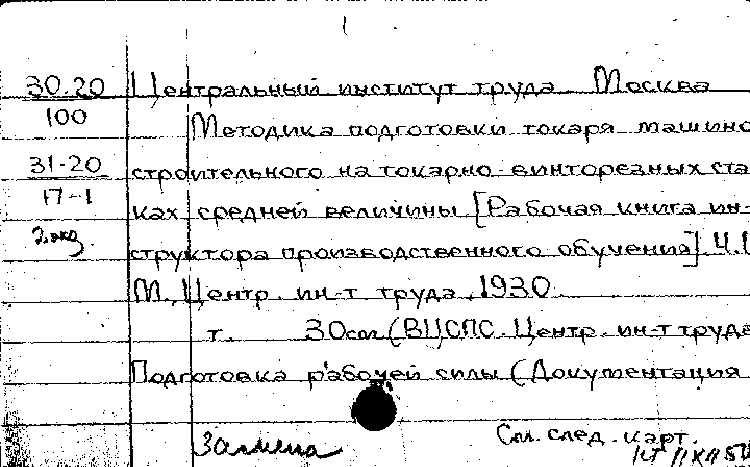 1
30.20 Центральный институт труда. Москва
100 Методика подготовки токаря машино
31-20 строительного на токарно-винторезных ста
17-1 ках средней величины [Рабочая книга ин-
2 экз. структора производственного обучения]. Ч.1
М., Центр. ин-т труда, 1930.
т. 30см (ВЦСПС. Центр. ин-т труда
Подготовка рабочей силы (Документация
Замена См. след. карт.